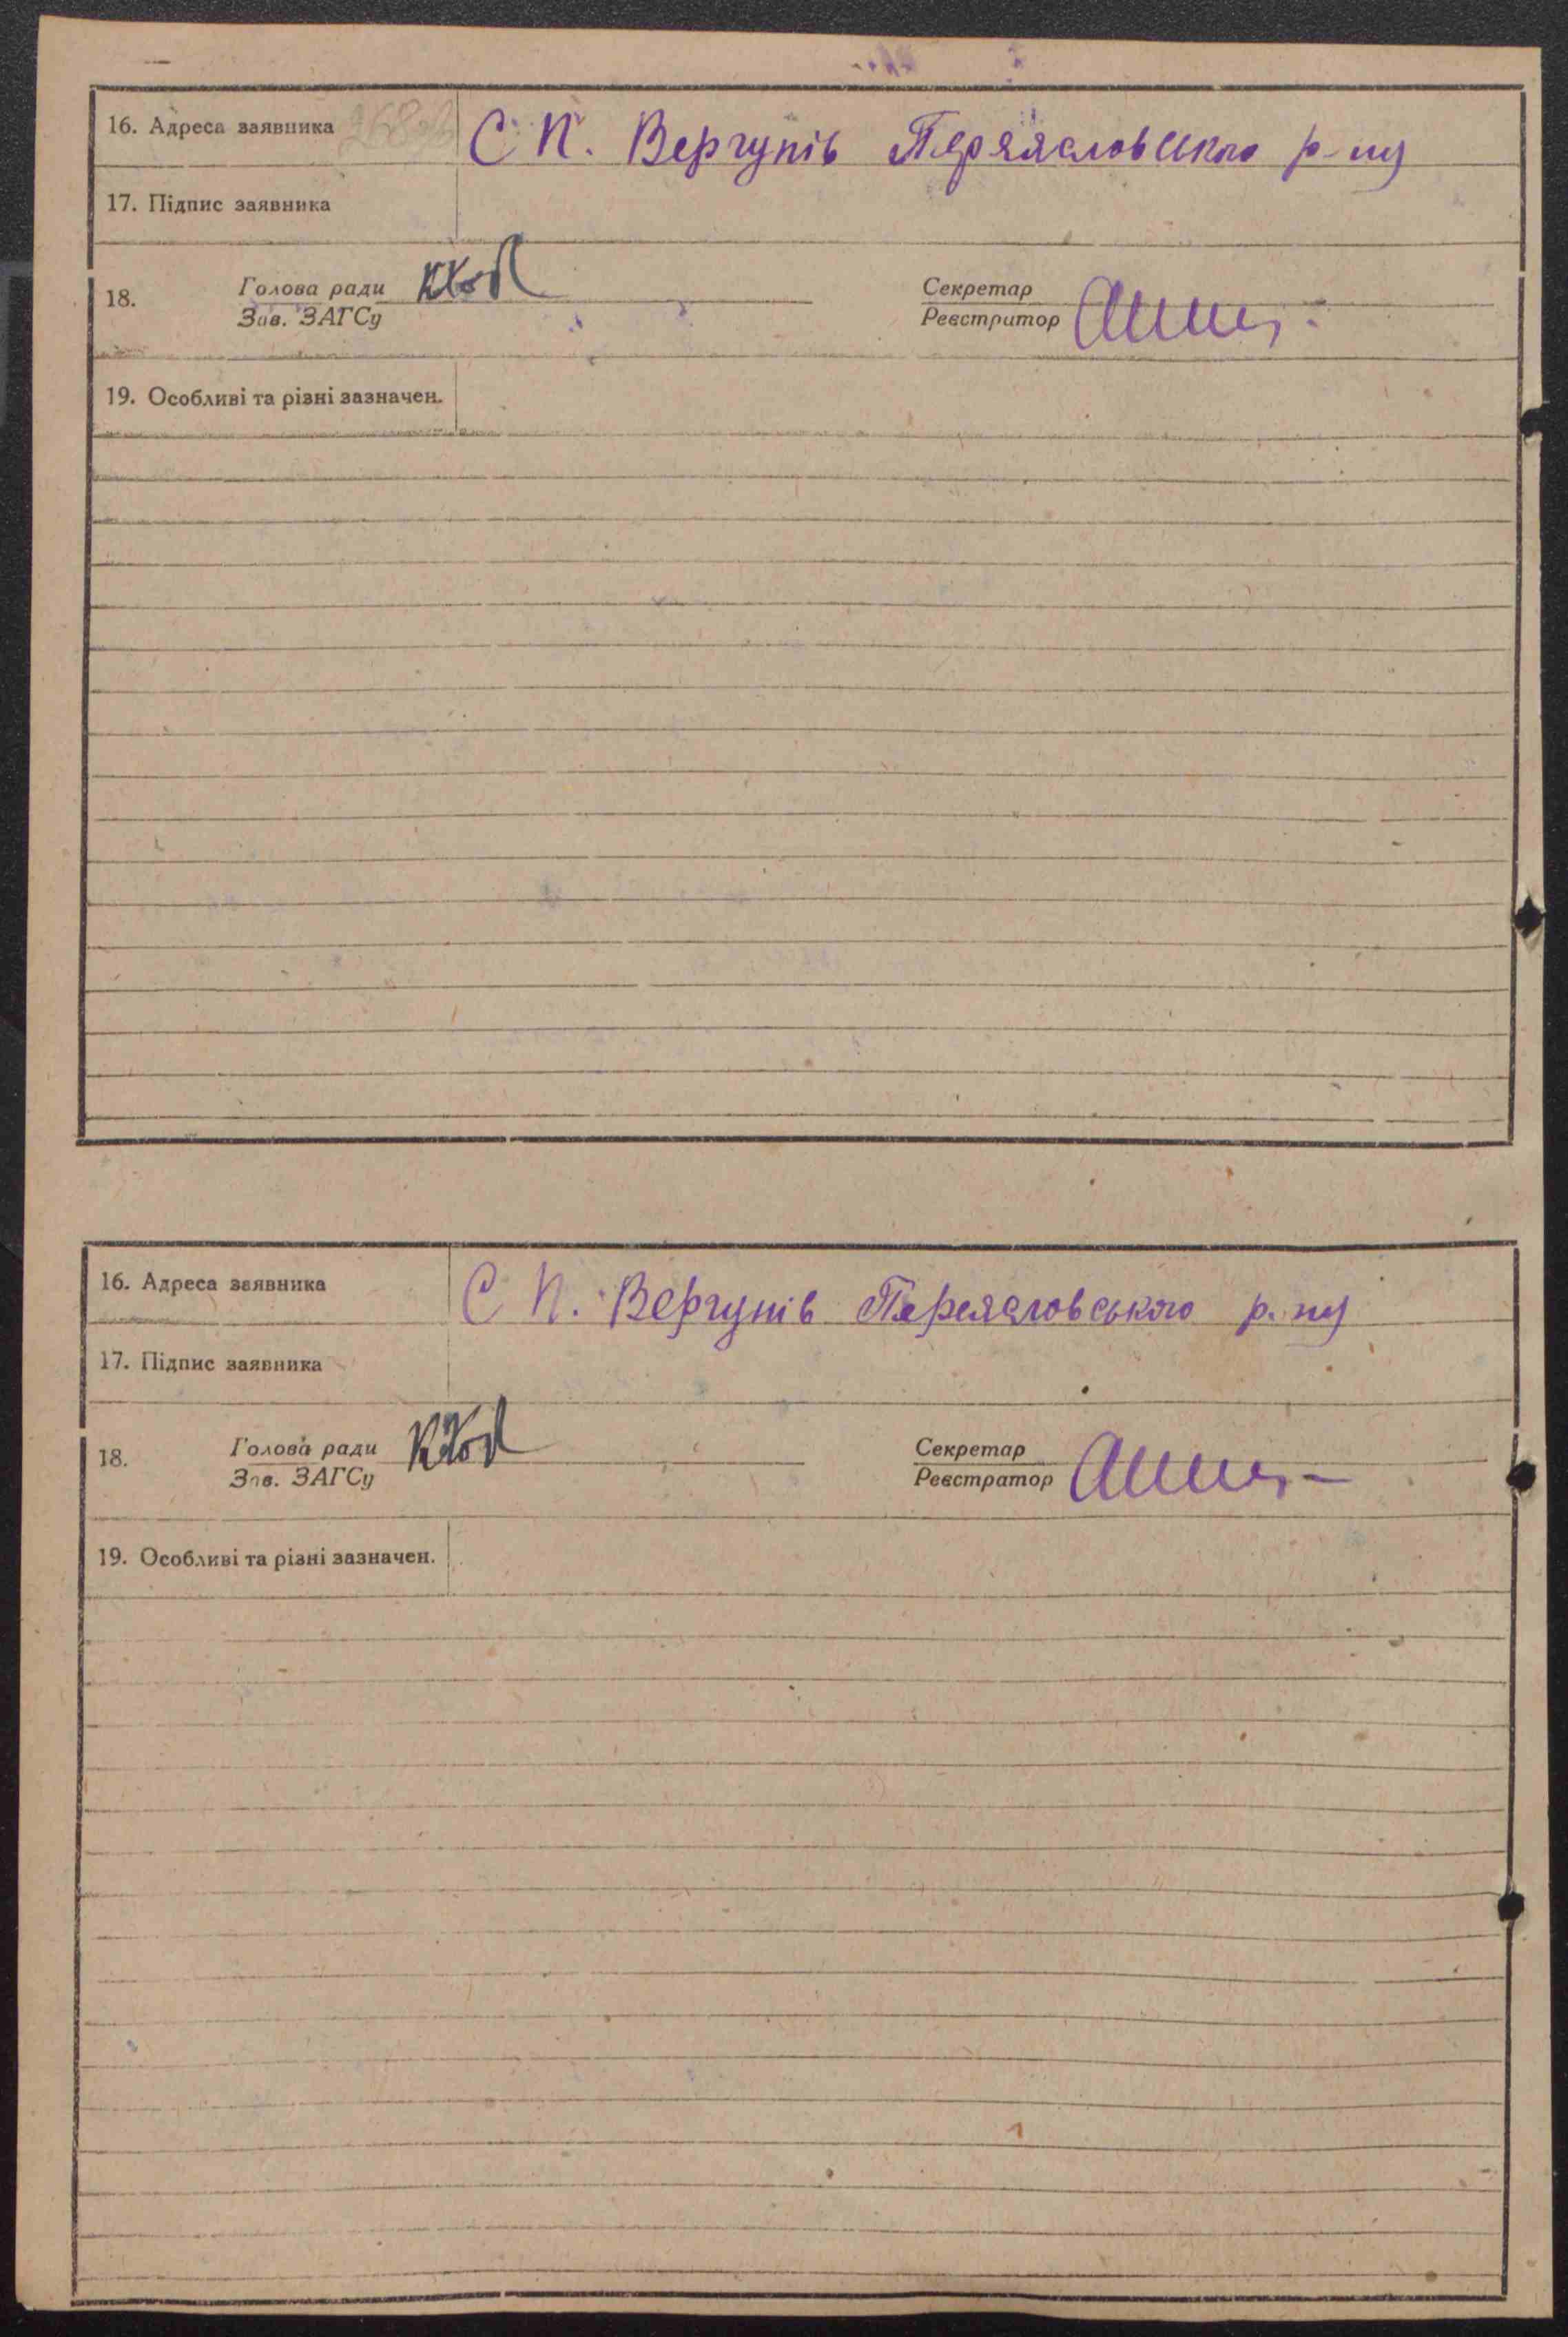 16. Адреса заявника С П. Вергунів Переяславського р-ну
17. Підпис заявника
18. Голова ради Секретар
Зав. ЗАГСу Реєстратор
19. Особливі та різні зазначен.
16. Адреса заявника С П. Вергунів Переясловського р. ну
17. Підпис заявника
18. Голова ради Секретар
Зав. ЗАГСу Реєстратор
19. Особливі та різні зазначен.